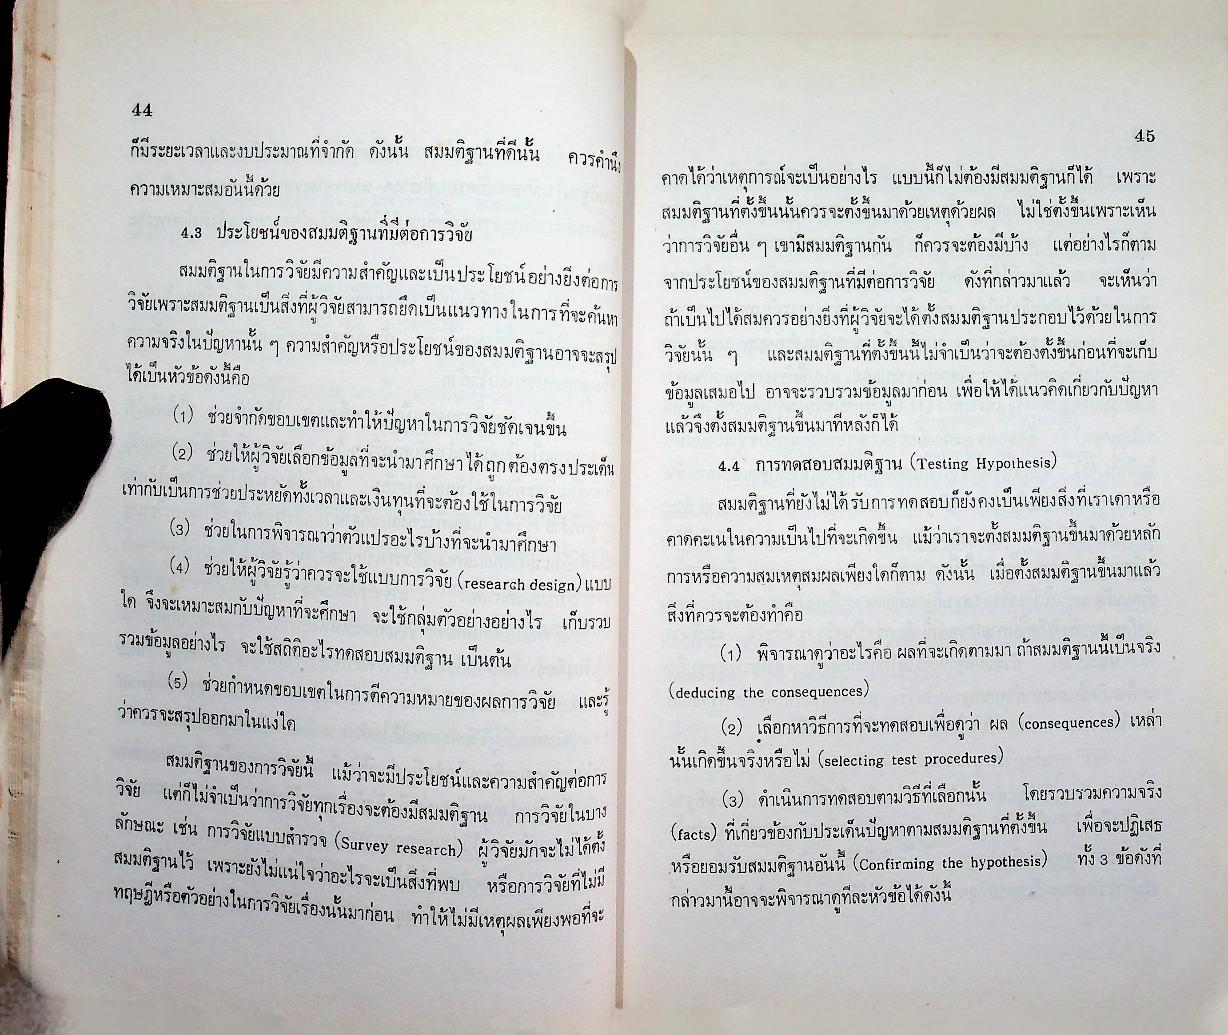 44
ก็มีระยะเวลาและงบประมาณที่จำกัด ดังนั้น สมมติฐานที่ดีนั้น ควรคำนึง
ความเหมาะสมอันนี้ด้วย
4.3 ประโยชน์ของสมมติฐานที่มีต่อการวิจัย
สมมติฐานในการวิจัยมีความสำคัญและเป็นประโยชน์อย่างยิ่งต่อการ
วิจัยเพราะสมมติฐานเป็นสิ่งที่ผู้วิจัยสามารถยึดเป็นแนวทางในการที่จะค้นหา
ความจริงในปัญหานั้น ๆ ความสำคัญหรือประโยชน์ของสมมติฐานอาจจะสรุป
ได้เป็นหัวข้อดังนี้คือ
(1) ช่วยจำกัดขอบเขตและทำให้ปัญหาในการวิจัยชัดเจนขึ้น
(2) ช่วยให้ผู้วิจัยเลือกข้อมูลที่จะนำมาศึกษาได้ถูกต้องตรงประเด็น
เท่ากับเป็นการช่วยประหยัดทั้งเวลาและเงินทุนที่จะต้องใช้ในการวิจัย
(3) ช่วยในการพิจารณาว่าตัวแปรอะไรบ้างที่จะนำมาศึกษา
(4) ช่วยให้ผู้วิจัยรู้ว่าควรจะใช้แบบการวิจัย (research design) แบบ
ใด จึงจะเหมาะสมกับปัญหาที่จะศึกษา จะใช้กลุ่มตัวอย่างอย่างไร เก็บรวบ
รวมข้อมูลอย่างไร จะใช้สถิติอะไรทดสอบสมมติฐาน เป็นต้น
(5) ช่วยกำหนดขอบเขตในการตีความหมายของผลการวิจัย และรู้
ว่าควรจะสรุปออกมาในแง่ใด
สมมติฐานของการวิจัยนี้ แม้ว่าจะมีประโยชน์และความสำคัญต่อการ
วิจัย แต่ก็ไม่จำเป็นว่าการวิจัยทุกเรื่องจะต้องมีสมมติฐาน การวิจัยในบาง
ลักษณะ เช่น การวิจัยแบบสำรวจ (Survey research) ผู้วิจัยมักจะไม่ได้ตั้ง
สมมติฐานไว้ เพราะยังไม่แน่ใจว่าอะไรจะเป็นสิ่งที่พบ หรือการวิจัยที่ไม่มี
ทฤษฎีหรือตัวอย่างในการวิจัยเรื่องนั้นมาก่อน ทำให้ไม่มีเหตุผลเพียงพอที่จะ
45
คาดได้ว่าเหตุการณ์จะเป็นอย่างไร แบบนี้ก็ไม่ต้องมีสมมติฐานก็ได้ เพราะ
สมมติฐานที่ตั้งขึ้นนั้นควรจะตั้งขึ้นมาด้วยเหตุด้วยผล ไม่ใช่ตั้งขึ้นเพราะเห็น
ว่าการวิจัยอื่น ๆ เขามีสมมติฐานกัน ก็ควรจะต้องมีบ้าง แต่อย่างไรก็ตาม
จากประโยชน์ของสมมติฐานที่มีต่อการวิจัย ดังที่กล่าวมาแล้ว จะเห็นว่า
ถ้าเป็นไปได้สมควรอย่างยิ่งที่ผู้วิจัยจะได้ตั้งสมมติฐานประกอบไว้ด้วยในการ
วิจัยนั้น ๆ และสมมติฐานที่ตั้งขึ้นนี้ไม่จำเป็นว่าจะต้องตั้งขึ้นก่อนที่จะเก็บ
ข้อมูลเสมอไป อาจจะรวบรวมข้อมูลมาก่อน เพื่อให้ได้แนวคิดเกี่ยวกับปัญหา
แล้วจึงตั้งสมมติฐานขึ้นมาทีหลังก็ได้
4.4 การทดสอบสมมติฐาน (Testing Hypothesis)
สมมติฐานที่ยังไม่ได้รับการทดสอบก็ยังคงเป็นเพียงสิ่งที่เราเดาหรือ
คาดคะเนในความเป็นไปที่จะเกิดขึ้น แม้ว่าเราจะตั้งสมมติฐานขึ้นมาด้วยหลัก
การหรือความสมเหตุสมผลเพียงใดก็ตาม ดังนั้น เมื่อตั้งสมมติฐานขึ้นมาแล้ว
สิ่งที่ควรจะต้องทำคือ
(1) พิจารณาดูว่าอะไรคือ ผลที่จะเกิดตามมา ถ้าสมมติฐานนี้เป็นจริง
(deducing the consequences)
(2) เลือกหาวิธีการที่จะทดสอบเพื่อดูว่า ผล (consequences) เหล่า
นั้นเกิดขึ้นจริงหรือไม่ (selecting test procedures)
(3) ดำเนินการทดสอบตามวิธีที่เลือกนั้น โดยรวบรวมความจริง
(facts) ที่เกี่ยวข้องกับประเด็นปัญหาตามสมมติฐานที่ตั้งขึ้น เพื่อจะปฏิเสธ
หรือยอมรับสมมติฐานอันนี้ (Confirming the hypothesis) ทั้ง 3 ข้อดังที่
กล่าวมานี้อาจจะพิจารณาดูทีละหัวข้อได้ดังนี้